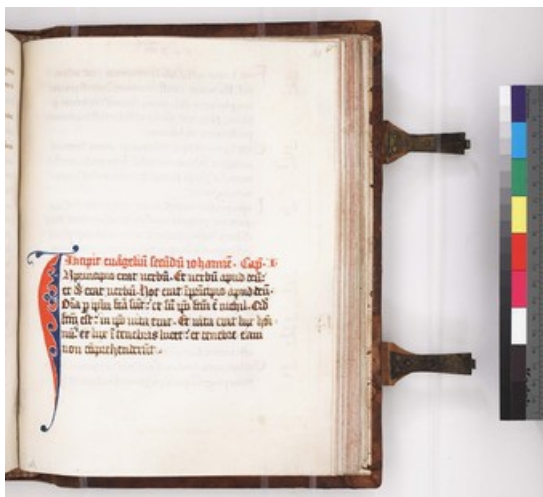 Incipit euāgeliū secūdū iohannē. Cap. I.
Inprincipio erat uerbū. Et uerbū apud deū:
et ds̄ erat uerbū. Hoc erat īprincipio apud deū.
Oīa p ipm fcā sūt: et sīn ipo fcm ē nichil. Qd
fcm est: in ipo uita erat. Et uita erat lux hoī
nū: et lux ī tenebris lucet: et tenebre eam
non cōprehenderūt.